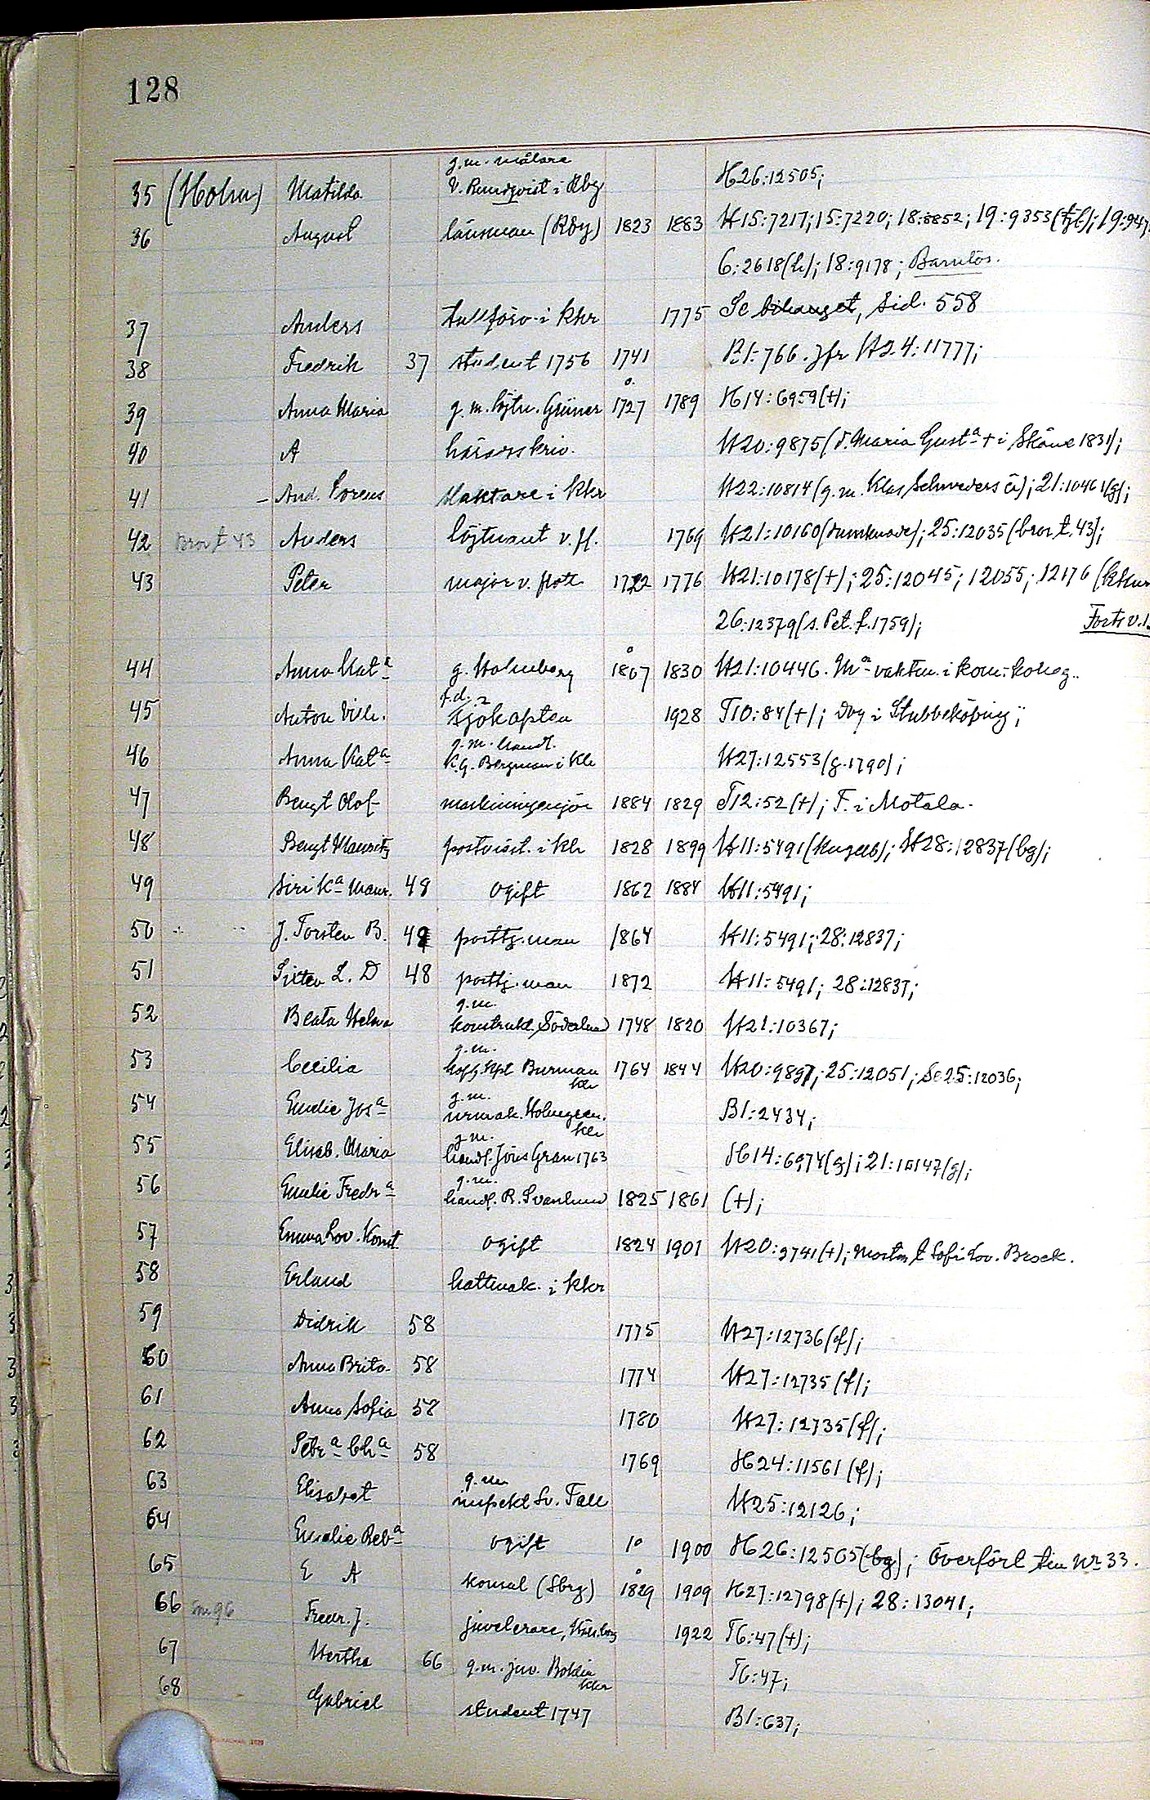 128
35 (Holm) Matilda g.m. målare V. Rundqvist i Rby H26:12505;
36 August länsman (Rby) 1823 1883 H15:7217; 15:7220; 18:8852; 19:9353
6:2618(h); 18:9178; Barnlös.
37 Anders tullförv. i kkr 1775 Se bihanget, sid. 558
38 Fredrik 37 student 1756 1741 B1:766. jfr H24:11777;
39 Anna Maria g.m. löjtn. Grüner 1727 1789 H14:6959(+);
40 A häradsskriv. H20:9875 (d. Maria Gustª + i Skåne 1831);
41 And. Lorens Maktare i kkr H22:10814 (g.m. Klas Schweders); 21:10461(g);
42 Bror t. 43 Anders löjtnant v. fl. 1769 H21:10160; 25:12035 (bror t. 43);
43 Peter major v. flott 1722 1776 H21:10178(+); 25:12045; 12055; 12176
26:12379 (s. Pet. f. 1759); Forts v.
44 Anna Katª g. Holmberg 1807 1830 H21:10446. i kom.
45 Anton Vilh. f.d. Sjökapten 1928 T10:84(+); dog i Stubbeköping;
46 Anna Katª g.m. handl. K.G. Bergman i kkr H27:12553 (g. 1790);
47 Bengt Olof maskiningenjör 1884 1829 T12:52(+); F. i Motala.
48 Bengt Maurits postvist. i kkr 1828 1899 H11:5491; H28:12837(bg);
49 Siri Kª Maur. 48 ogift 1862 1884 H11:5491;
50 J. Torsten B. 48 posttj.man 1864 H11:5491; 28:12837;
51 Sixten L. D 48 posttj.man 1872 H11:5491; 28:12837;
52 Beata Helena g.m. konstrukt. Söderlund 1748 1820 H21:10367;
53 Cecilia g.m. Burman kkr 1764 1844 H20:9897; 25:12051; Se 25:12036;
54 Emelie Josª g.m. urmak. Holmgren. kkr B1:2434;
55 Elisab. Maria g.m. handl. Jöns Gran 1763 H14:6974(g); 21:10147(g);
56 Emelie Fredrª g.m. handl. R. Svanlund 1825 1861 (+);
57 Emma Lov. Konst. ogift 1824 1901 H20:9741(+); moster t. Sofi Lov. Brock.
58 Erland hattmak. i kkr
59 Didrik 58 1775 H27:12736(f);
60 Anna Brita 58 1774 H27:12735(f);
61 Anna Sofia 58 1780 H27:12735(f);
62 Petrª Chª 58 1769 H24:11561(f);
63 Elisabet g.m. inspekt. Sv. Fall H25:12126;
64 Emelie Rebª ogift 10 1900 H26:12505(bg); Överförl till Nr 33.
65 E A konsul (Sbrg) 1829 1909 H27:12798(+); 28:13041;
66 Fredr. J. juvelerare, 1922 T6:47(+);
67 Hertha 66 g.m. juv. Bohlin kkr T6:47;
68 Gabriel student 1747 B1:637;